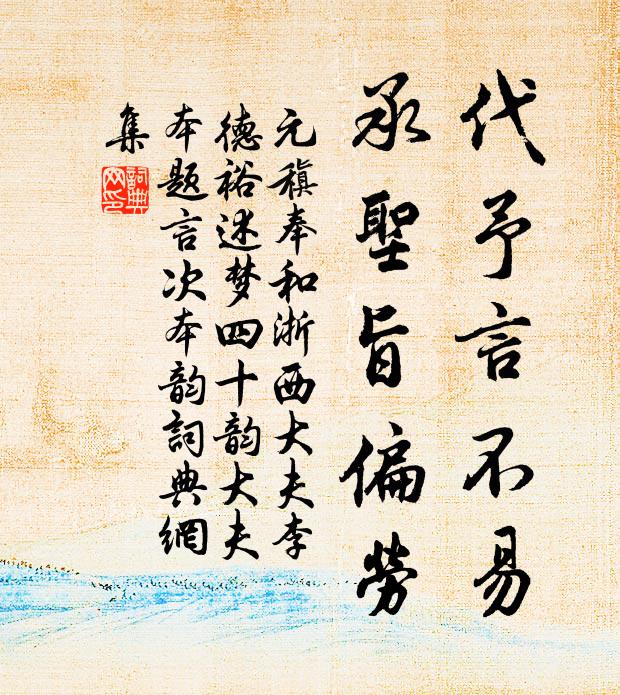 代予言不易
承聖旨偏勞
元稹奉和浙西大夫李
德裕述梦四十韵大夫
本题言次本韵詞典網
集
詞典
网印